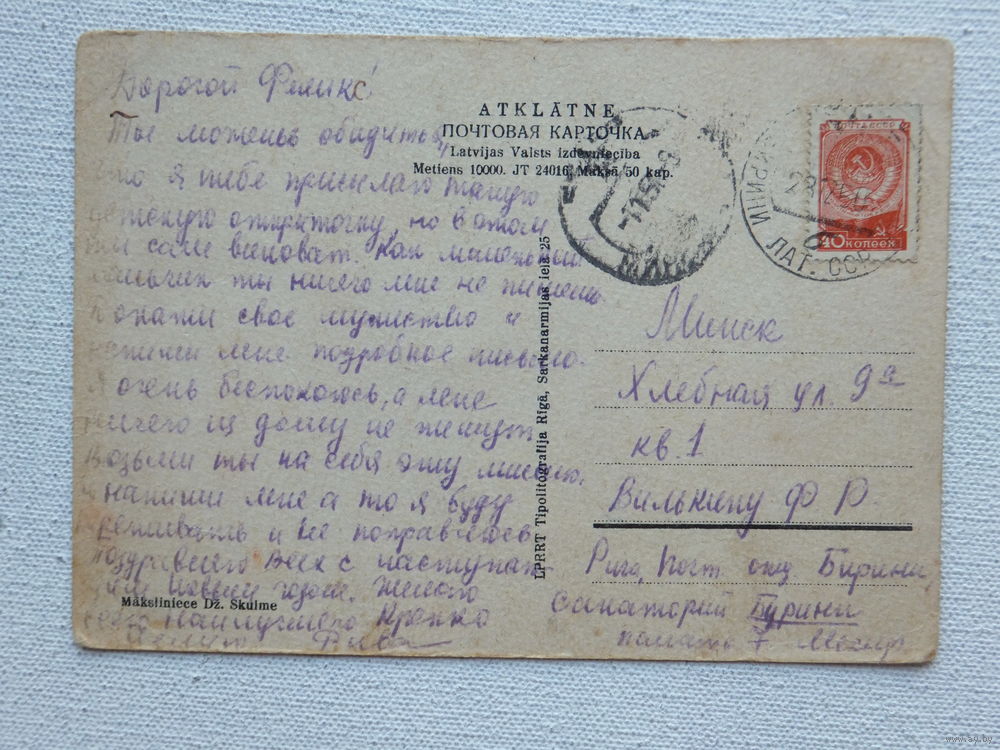 Дорогой Феликс!
Ты можешь обидиться,
что я тебе присылаю такую
детскую открыточку, но в этом
ты сам виноват. Как маленький
мальчик ты ничего мне не пишешь.
Покажи свое мужество и
напиши мне подробное письмо.
Я очень беспокоюсь, а мне
ничего из дому не пишут
Возьми ты на себя эту миссию.
и напиши мне а то я буду
и не поправлюсь
Поздравляю всех с наступаю-
щим Новым годом. Желаю
всего наилучшего Крепко
целую Рива
ATKLĀTNE
ПОЧТОВАЯ КАРТОЧКА
Latvijas Valsts izdevniecība
Metiens 10000. JT 24016 Maksā 50 kap.
LPRRT Tipolitografija Rīgā, Sarkanarmijas ielā 25
Māksliniece Dž. Skulme
ПОЧТА СССР
40 КОПЕЕК
ЛАТ. ССР
Минск
Хлебная ул. 9а
кв. 1
Вилькину Ф Р.
Рига, Почт отд Бирини,
санаторий Бирини
палата 7